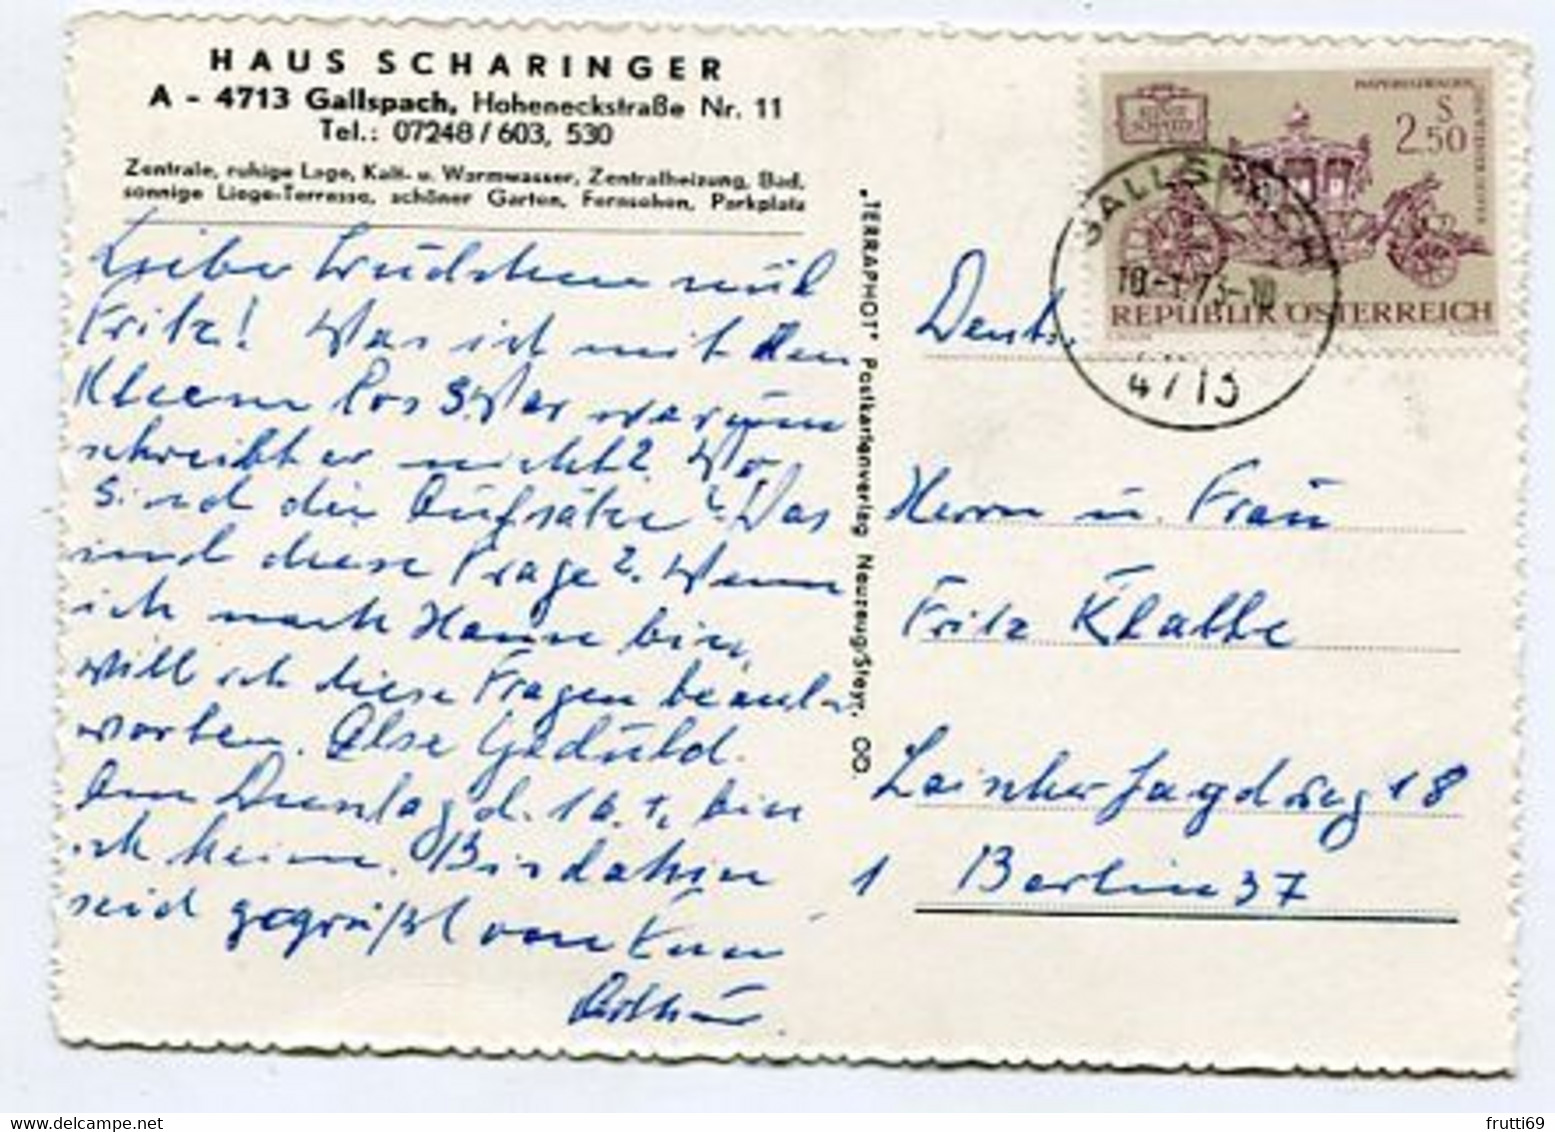 HAUS SCHARINGER
A - 4713 Gallspach, Hoheneckstraße Nr. 11
Tel.: 07248/603, 530
Zentrale, ruhige Lage, Kalt- u. Warmwasser, Zentralheizung, Bad,
sonnige Liege-Terrasse, schöner Garten, Fernsehen, Parkplatz
Liebe Trudchen und
Fritz! Was ist mit den
Kleem los? Wer warum
schreibt er nicht? Wo
sind die Aufsätze? Das
sind diese Frage? Wenn
ich nach Hause bin,
will ich diese Fragen beant-
worten. Also Geduld.
Am Dienstag d. 16.1. bin
ich heim. Bis dahin
seid gegrüßt von Eurem
Arthur
"TERRAPHOT" Postkartenverlag Neuzeug/Steyr, OÖ.
S
2.50
REPUBLIK ÖSTERREICH
GALLSPACH
4713
Deutschl.
Herrn u. Frau
Fritz Klatte
Loischer Jagdweg 18
1 Berlin 37
frutti69